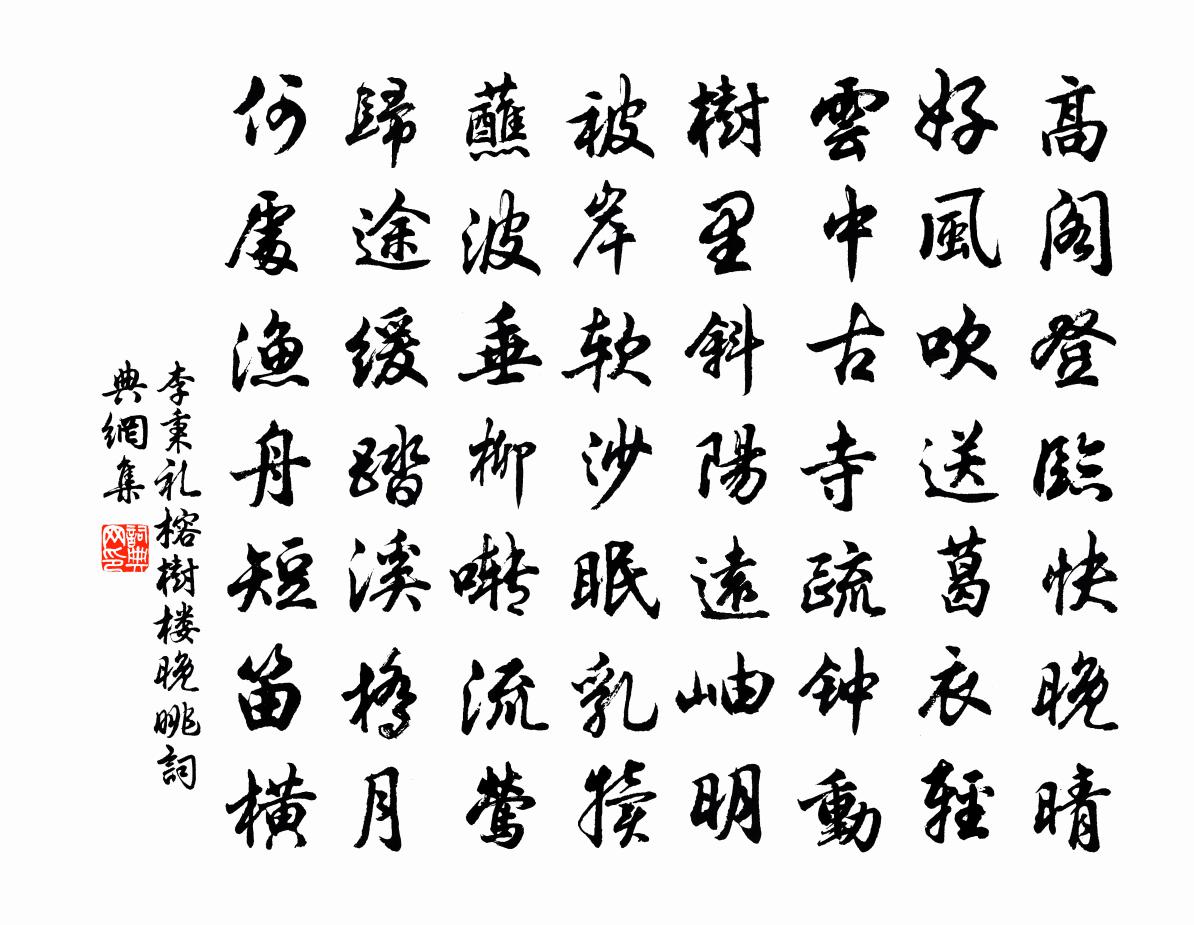 高閣登臨快晚晴
好風吹送葛衣輕
雲中古寺疏钟動
樹里斜陽遠岫明
被岸軟沙眠乳犢
蘸波垂柳囀流鶯
歸途緩踏溪橋月
何處漁舟短笛橫
李秉礼榕樹楼晚眺詞
典網集
詞典
网印